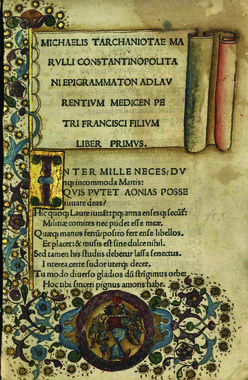 MICHAELIS TARCHANIOTAE MA
RVLLI CONSTANTINOPOLITA
NI EPIGRAMMATON AD LAV
RENTIVM MEDICEN PE
TRI FRANCISCI FILIVM
LIBER PRIMVS.
INTER MILLE NECES; DV
incommoda Martis:
QVIS PVTET AONIAS POSSE
iuuare deas?
Hic quoq; Laure iuuat
Militiæ comites nec pudet esse meæ.
Quæq; manus ferrū posito fert ense libellos.
Et placet & musis est sine dulce nihil.
Sed tamen his studiis debetur lassa senectus.
Interea certe sudor uterq; decet.
Tu modo diuerso gladios dū strigimus orbe:
Hoc tibi sinceri pignus amoris habe.